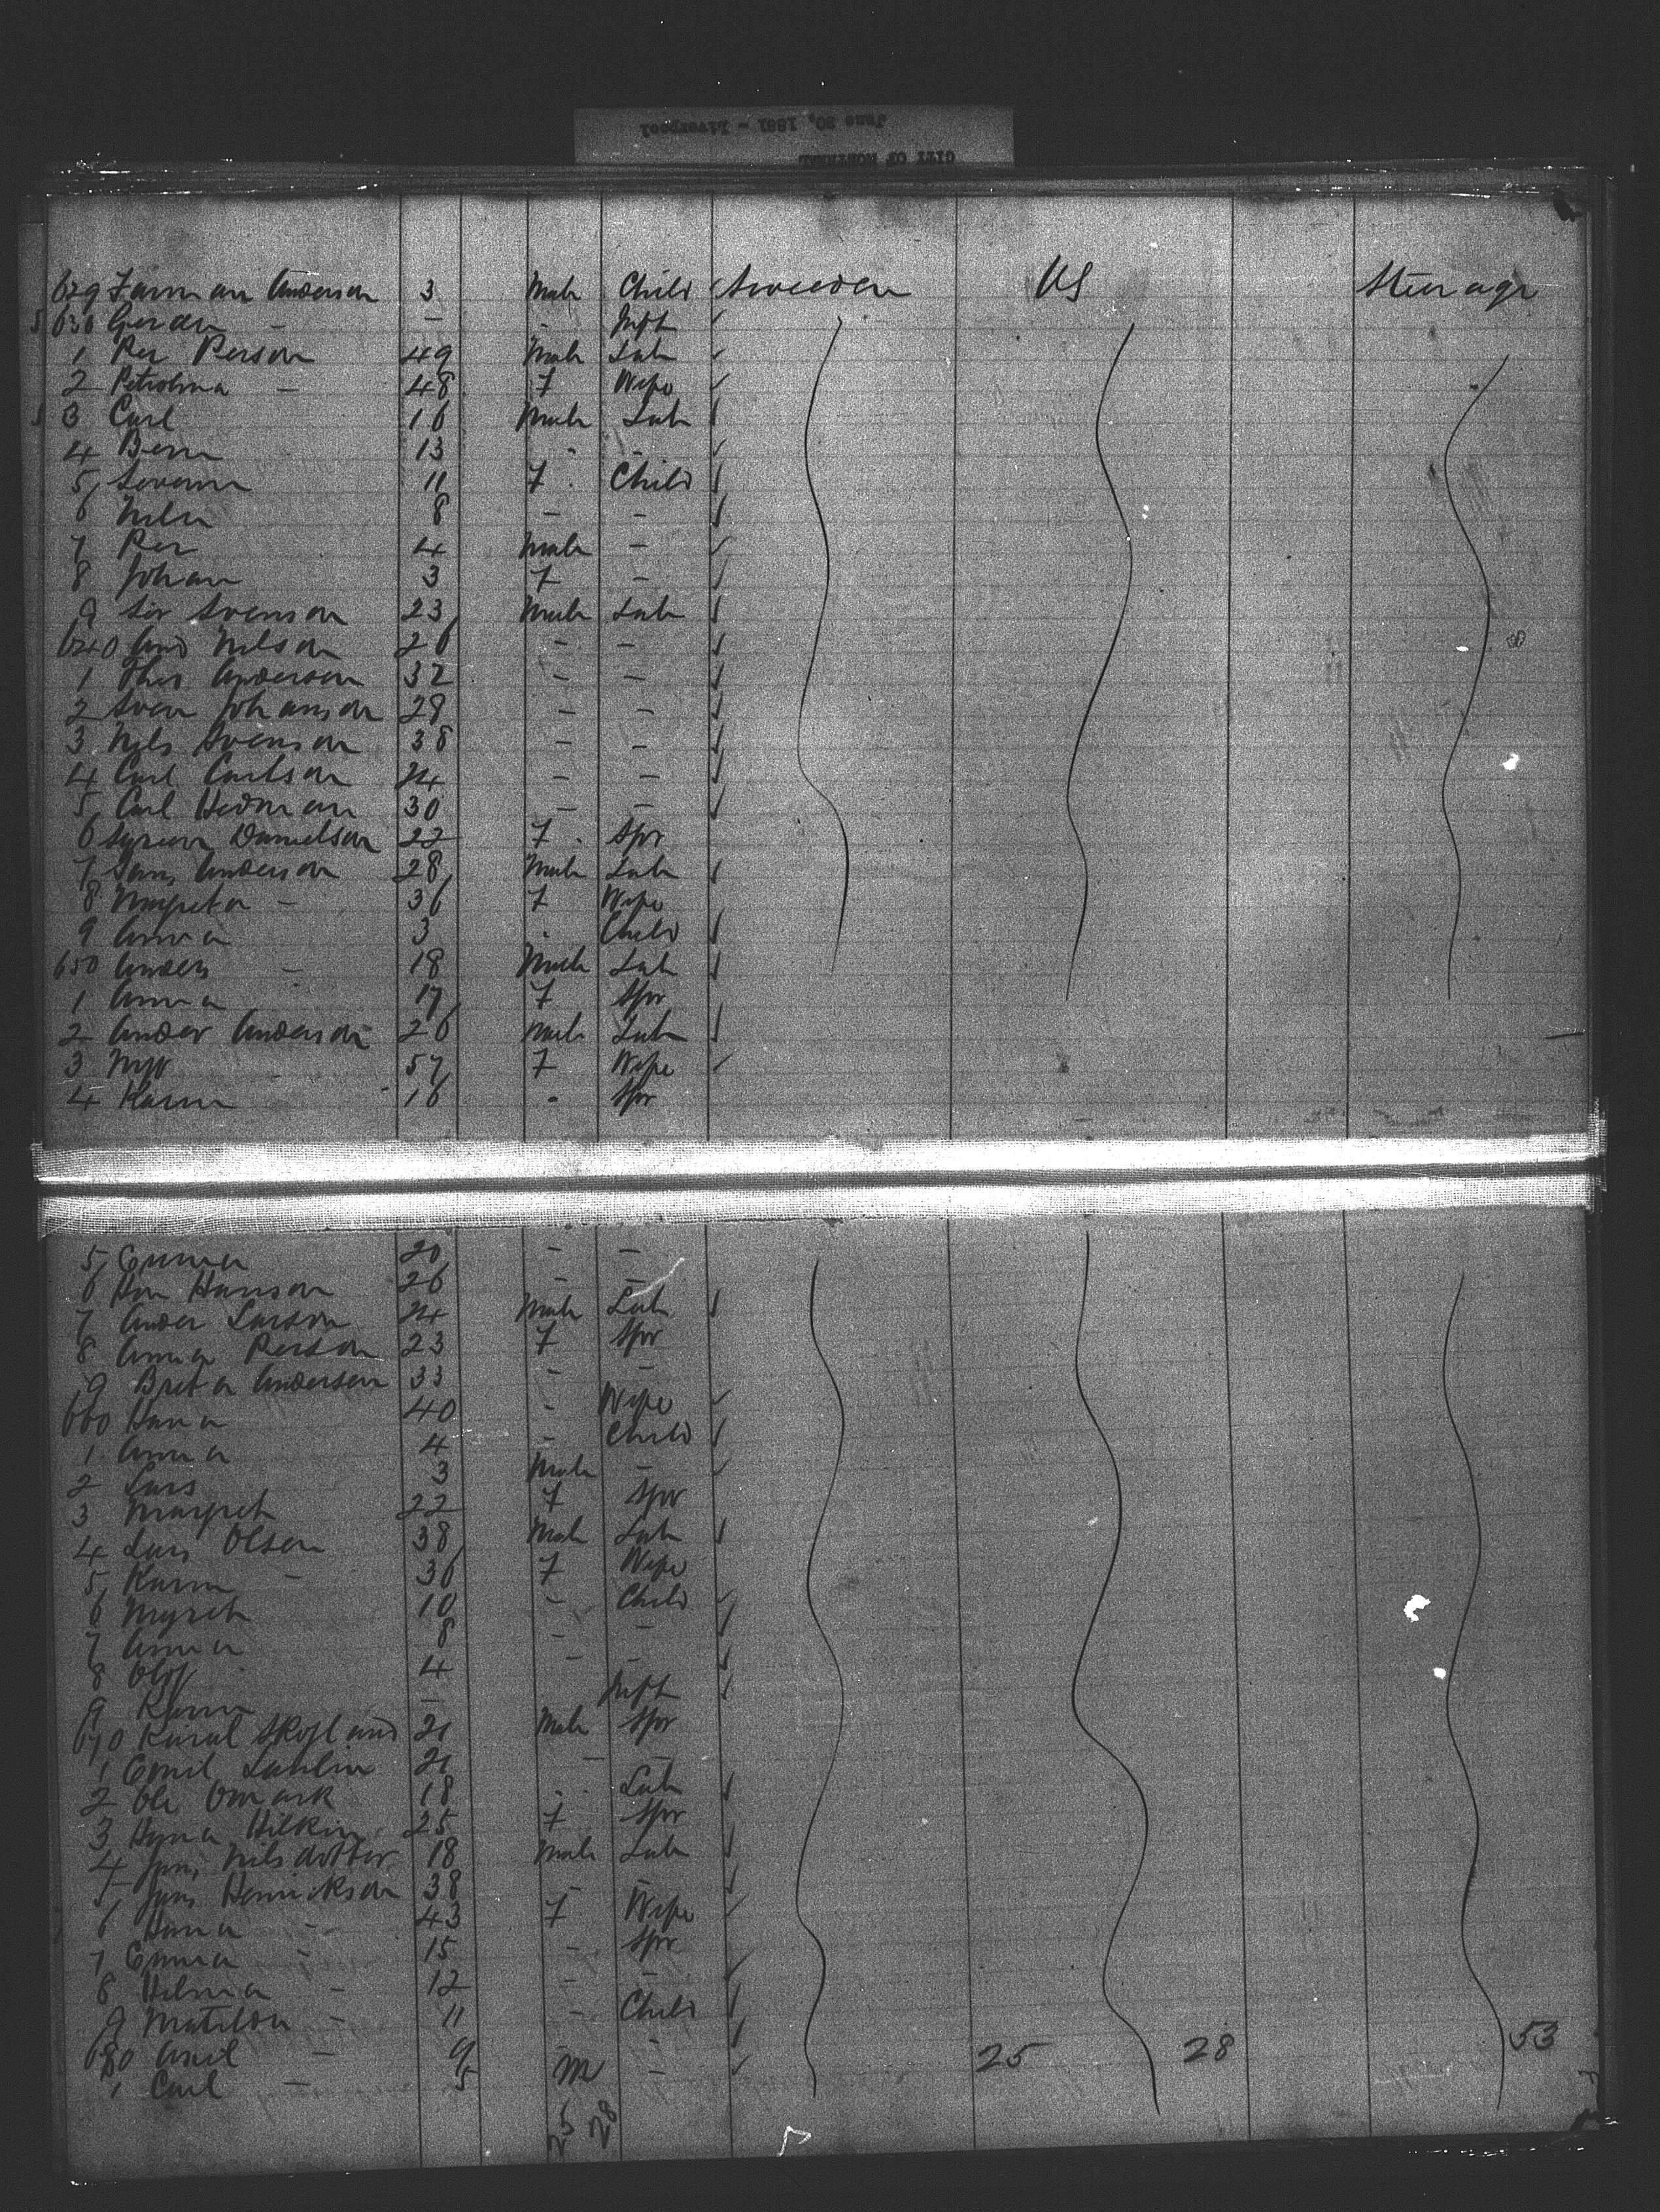 CITY OF MONTREAL
June 20, 1881 - Liverpool
629 Anderson 3 Male Child Sweden US Steerage
630 Gerda - - - Inft
1 Per Person 49 Male Lab
2 Petrolina - 48 F Wife
3 Carl 16 Male Lab
4 13 - -
5 11 F Child
6 8 - -
7 Per 4 Male -
8 Johan 3 F -
9 Svenson 23 Male Lab
640 And Nilson 26 - -
1 Anderson 32 - -
2 Sven Johanson 28 - -
3 Nils Svenson 38 - -
4 Carl Carlson 24 - -
5 Carl Hedman 30 - -
6 Danielson 22 F Spr
7 Anderson 28 Male Lab
8 Margreta - 36 F Wife
9 Anna 3 - Child
650 Anders - 18 Male Lab
1 Anna 17 F Spr
2 Ander Anderson 26 Male Lab
3 57 F Wife
4 Karin 16 - Spr
5 Emma 20 - -
6 Hanson 26 - -
7 Ander Larson 24 Male Lab
8 Anna Person 23 F Spr
9 Breta Anderson 33 - -
660 Hanna 40 - Wife
1 Anna 4 - Child
2 Lars 3 Male -
3 Margret 22 F Spr
4 Lars Olsen 38 Male Lab
5 Karin - 36 F Wife
6 10 - Child
7 Anna 8 - -
8 Olof 4 - -
9 Karin - Inft
670 21 Male Spr
1 Emil 21 - -
2 Ole Omark 18 - Lab
3 25 F Spr
4 Nilsdotter 18 Male Lab
5 Henrickson 38 - -
6 Hanna - 43 F Wife
7 Emma - 15 - Spr
8 Hilma - 12 - -
9 Matilda - 11 - Child
680 Axel - 9 - -
1 Carl - 5 M -
25 28 53
25 28